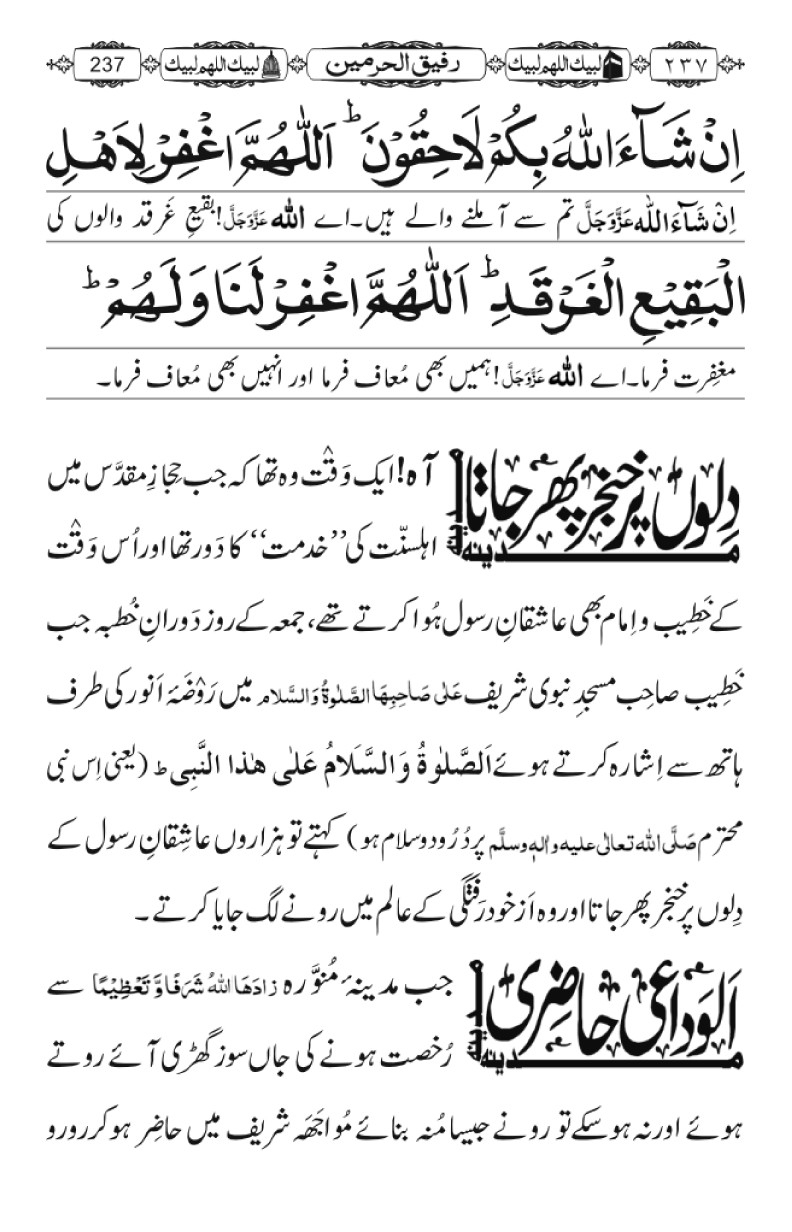 ٢٣٧ لبيك اللهم لبيك رفيق الحرمين لبيك اللهم لبيك 237
اِنْ شَآءَ اللهُ بِكُمْ لَاحِقُوْنَ ؕ اَللّٰهُمَّ اغْفِرْ لِاَهْلِ
اِنْ شَآءَ اللّٰہ عَزَّوَجَلَّ تم سے آ ملنے والے ہیں۔اے اللّٰہ عَزَّوَجَلَّ!بقیعِ غَرقد والوں کی
الْبَقِيْعِ الْغَرْقَدِ ؕ اَللّٰهُمَّ اغْفِرْ لَنَا وَلَهُمْ ؕ
مغفِرت فرما۔اے اللّٰہ عَزَّوَجَلَّ!ہمیں بھی مُعاف فرما اور انہیں بھی مُعاف فرما۔
دِلوں پر خنجر پھر جاتا
مدینہ مدینہ
آہ!ایک وَقْت وہ تھا کہ جب حِجازِ مقدَّس میں
اہلسنّت کی’’خدمت‘‘ کا دَور تھا اور اُس وَقْت
کے خَطِیب و اِمام بھی عاشقانِ رسول ہُوا کرتے تھے، جمعہ کے روز دَورانِ خُطبہ جب
خَطِیب صاحِب مسجدِ نبوی شریف عَلٰی صَاحِبِهَا الصَّلٰوةُ وَالسَّلام میں رَوْضَۂ اَنور کی طرف
ہاتھ سے اِشارہ کرتے ہوئے اَلصَّلٰوةُ وَالسَّلَامُ عَلٰى هٰذا النَّبِى ؕ (یعنی اِس نبی
محترم صَلَّی اللہ تعالٰی علیہ واٰلہٖ وسلَّم پر دُرُود وسلام ہو) کہتے تو ہزاروں عاشِقانِ رسول کے
دِلوں پر خنجر پھر جاتا اور وہ اَزخود رَفْتگی کے عالم میں رونے لگ جایا کرتے ۔
اَلوَداعی حاضِری
مدینہ مدینہ
جب مدینۂ مُنوَّرہ زادَهَا اللهُ شَرَفًا وَّ تَعْظِيْمًا سے
رُخصت ہونے کی جاں سوز گھڑی آئے روتے
ہوئے اور نہ ہوسکے تو رونے جیسا مُنہ بنائے مُواجَہَہ شریف میں حاضِر ہو کر رو رو